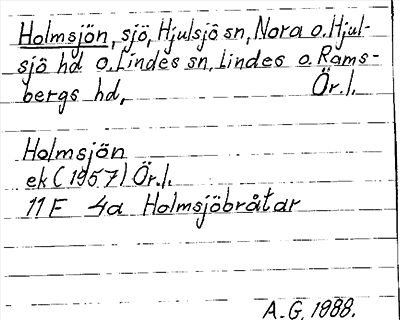 Holmsjön, sjö, Hjulsjö sn, Nora o. Hjul-
sjö hd o. Lindes sn, Lindes o. Rams-
bergs hd, Ör. l.
Holmsjön
ek (1957) Ör. l.
11 F 4a Holmsjöbråtar
A. G. 1988.